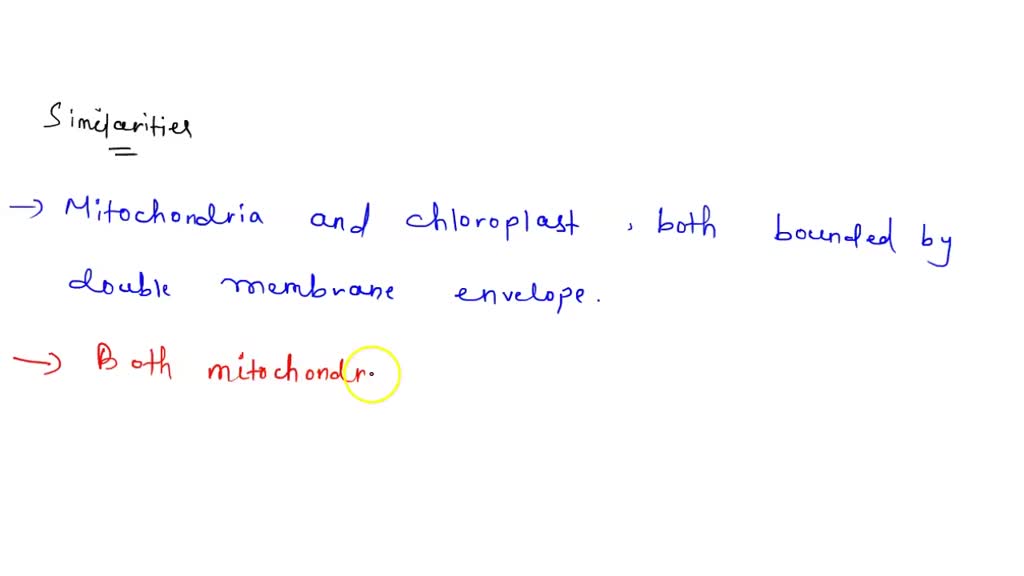 Similarities
→ Mitochondria and chloroplast, both bounded by
double membrane envelope.
→ Both mitochondr